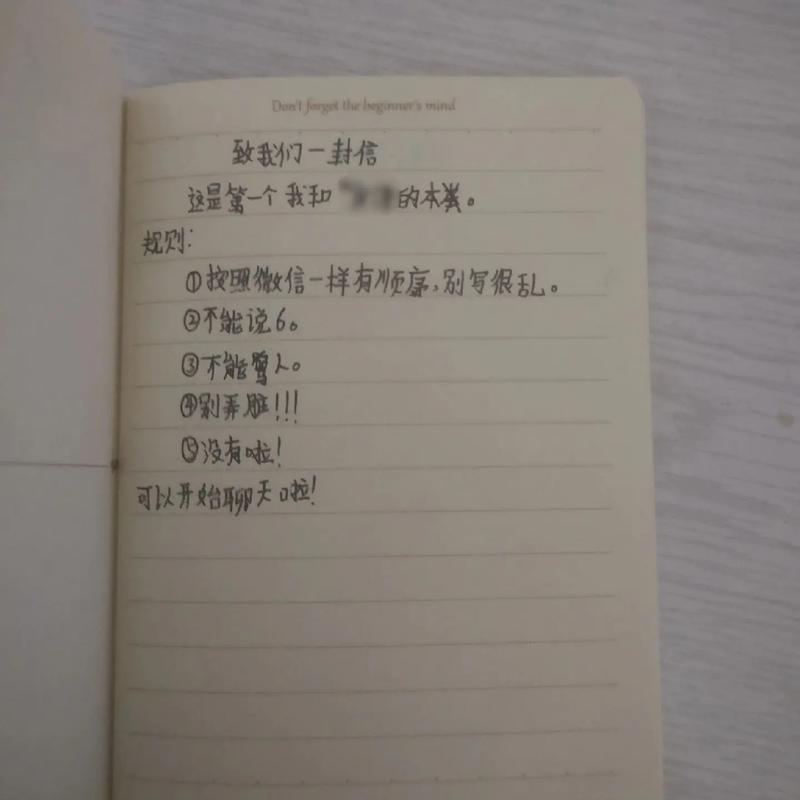 Don't forget the beginner's mind
致我们一封信
这是第一个我和的本类。
规则:
①按照微信一样有顺序,别写很乱。
②不能说6。
③不能骂人。
④别弄脏!!!
⑤没有啦!
可以开始聊天啦!